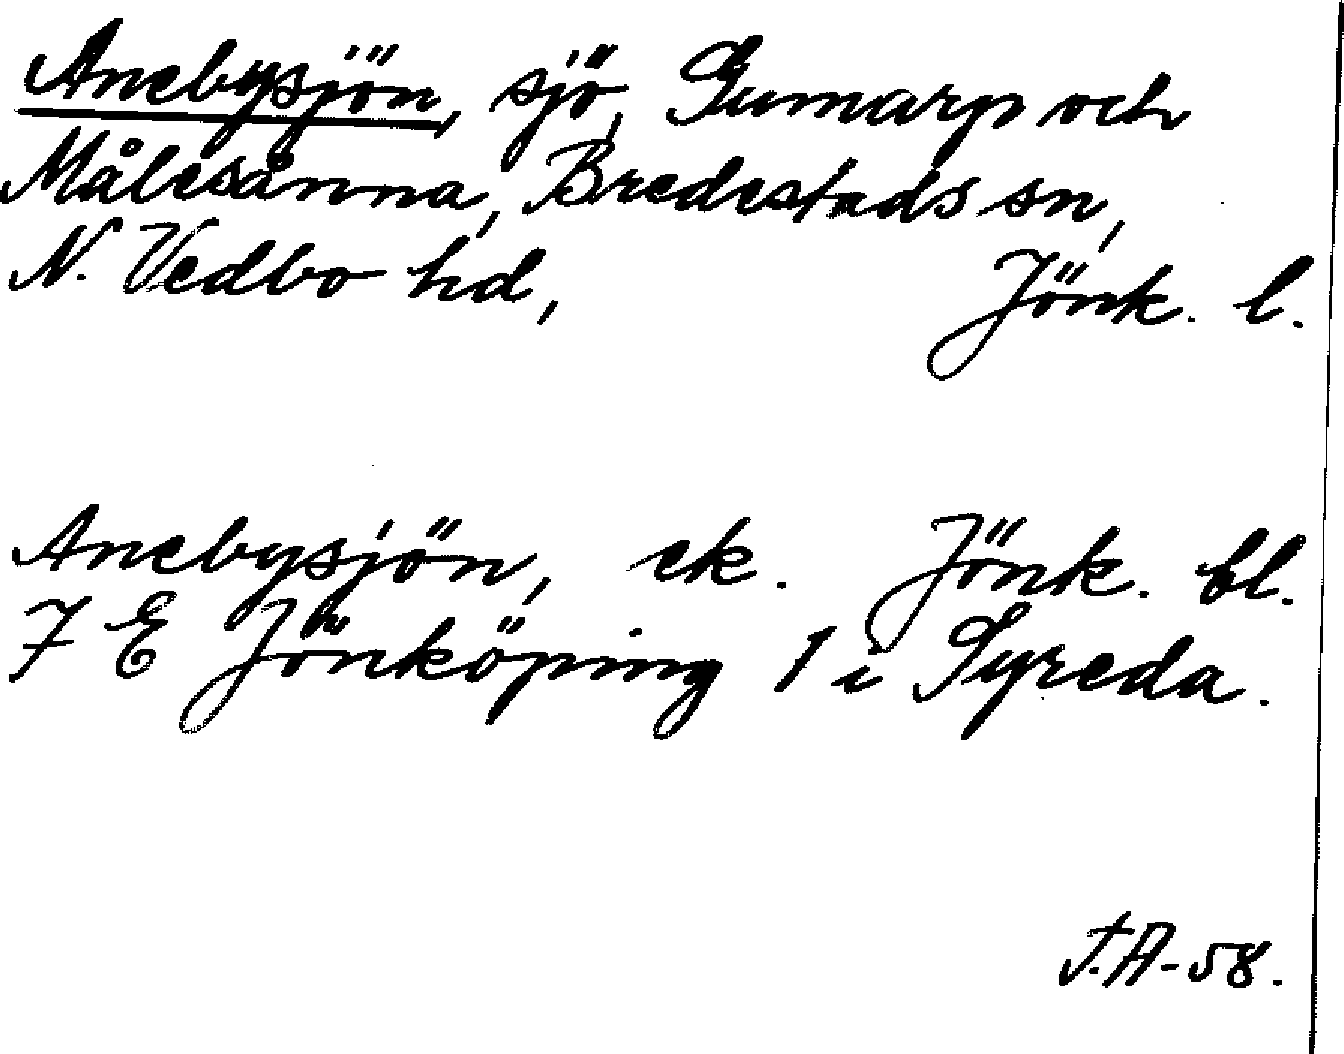 Anebysjön, sjö, Gumarp och
Målesänna, Bredestads sn,
N. Vedbo hd, Jönk. l.
Anebysjön, ek. Jönk. bl.
7 E Jönköping 1 i Syreda.
J.A-58.